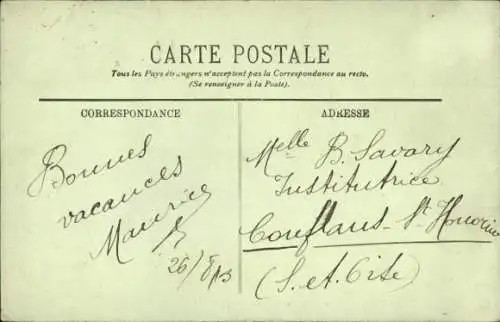 CARTE POSTALE
Tous les Pays étrangers n'acceptent pas la Correspondance au recto.
(Se renseigner à la Poste).
CORRESPONDANCE
Bonnes
vacances
Maurice
ADRESSE
Melle B. Savory
Institutrice
Conflans-St Honorine
(S. et Oise)